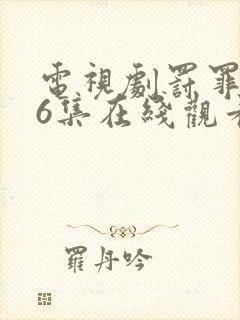 電視劇罸罪
6集在綫觀看
羅丹吟